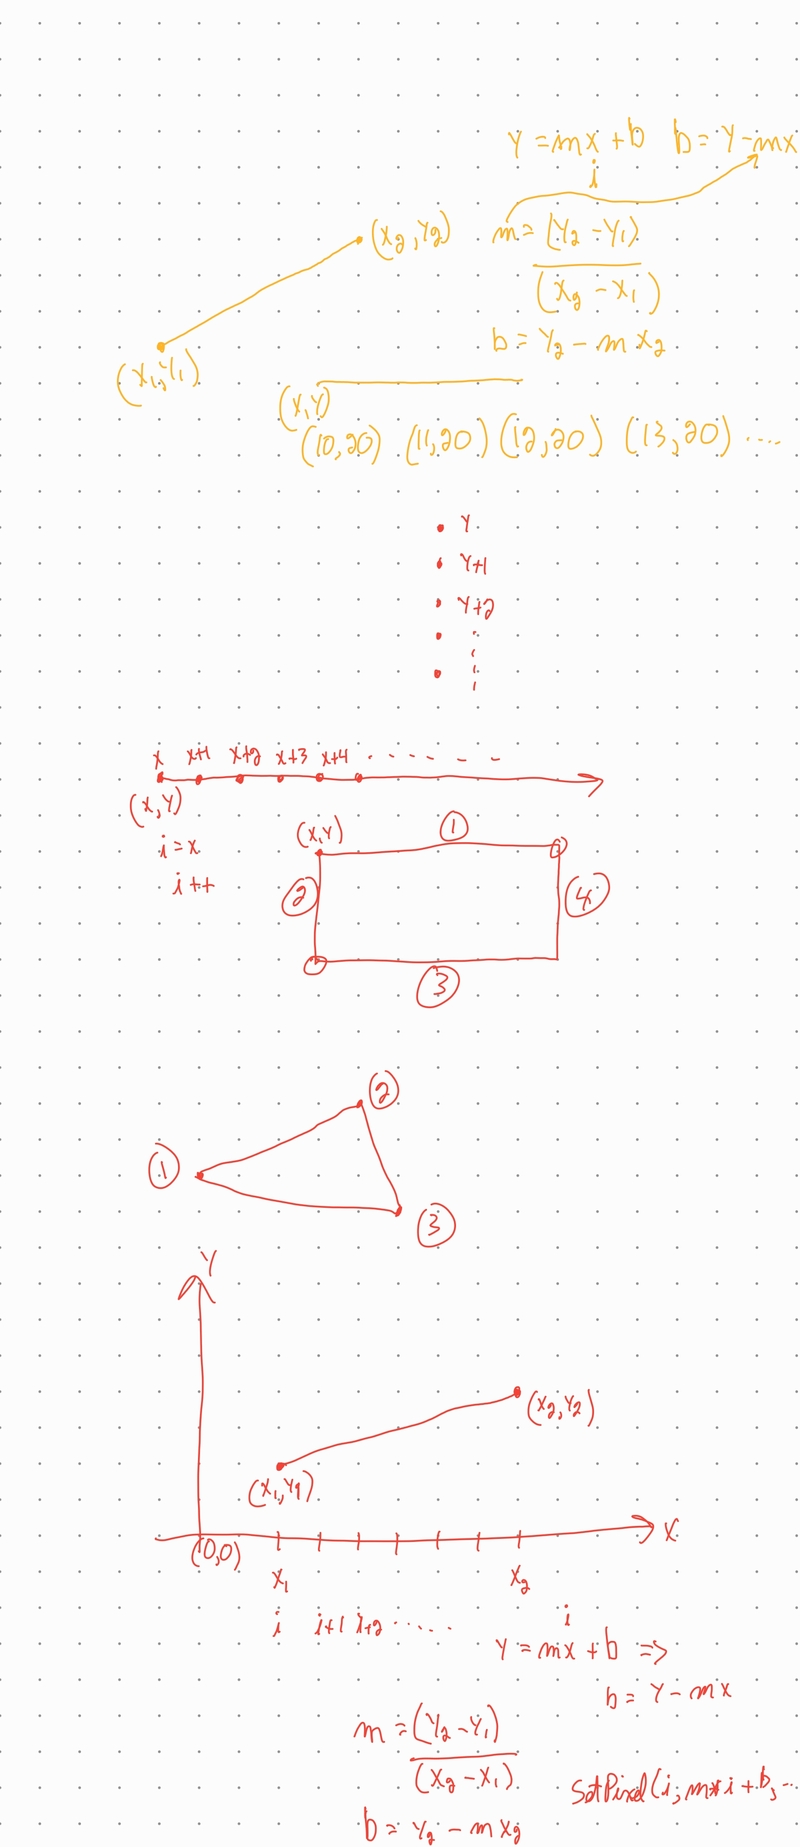 Y = mx + b   b = Y - mx
i
(X2, Y2)   m = (Y2 - Y1)
(X2 - X1)
b = Y2 - m X2
(X1, Y1)
(X, Y)
(10,20) (11,20) (12,20) (13,20) ....
Y
Y+1
Y+2
x x+1 x+2 x+3 x+4 . . - - - -
(X, Y)
i = x
i++
(X,Y) ①
② ④
③
②
①
③
Y
(X2, Y2)
(X1, Y1)
X
(0,0)
X1 X2
i i+1 i+2 .....
i
Y = mx + b =>
b = Y - mx
m = (Y2 - Y1)
(X2 - X1)
SetPixel(i, m*i + b, ...
b = Y2 - m X2